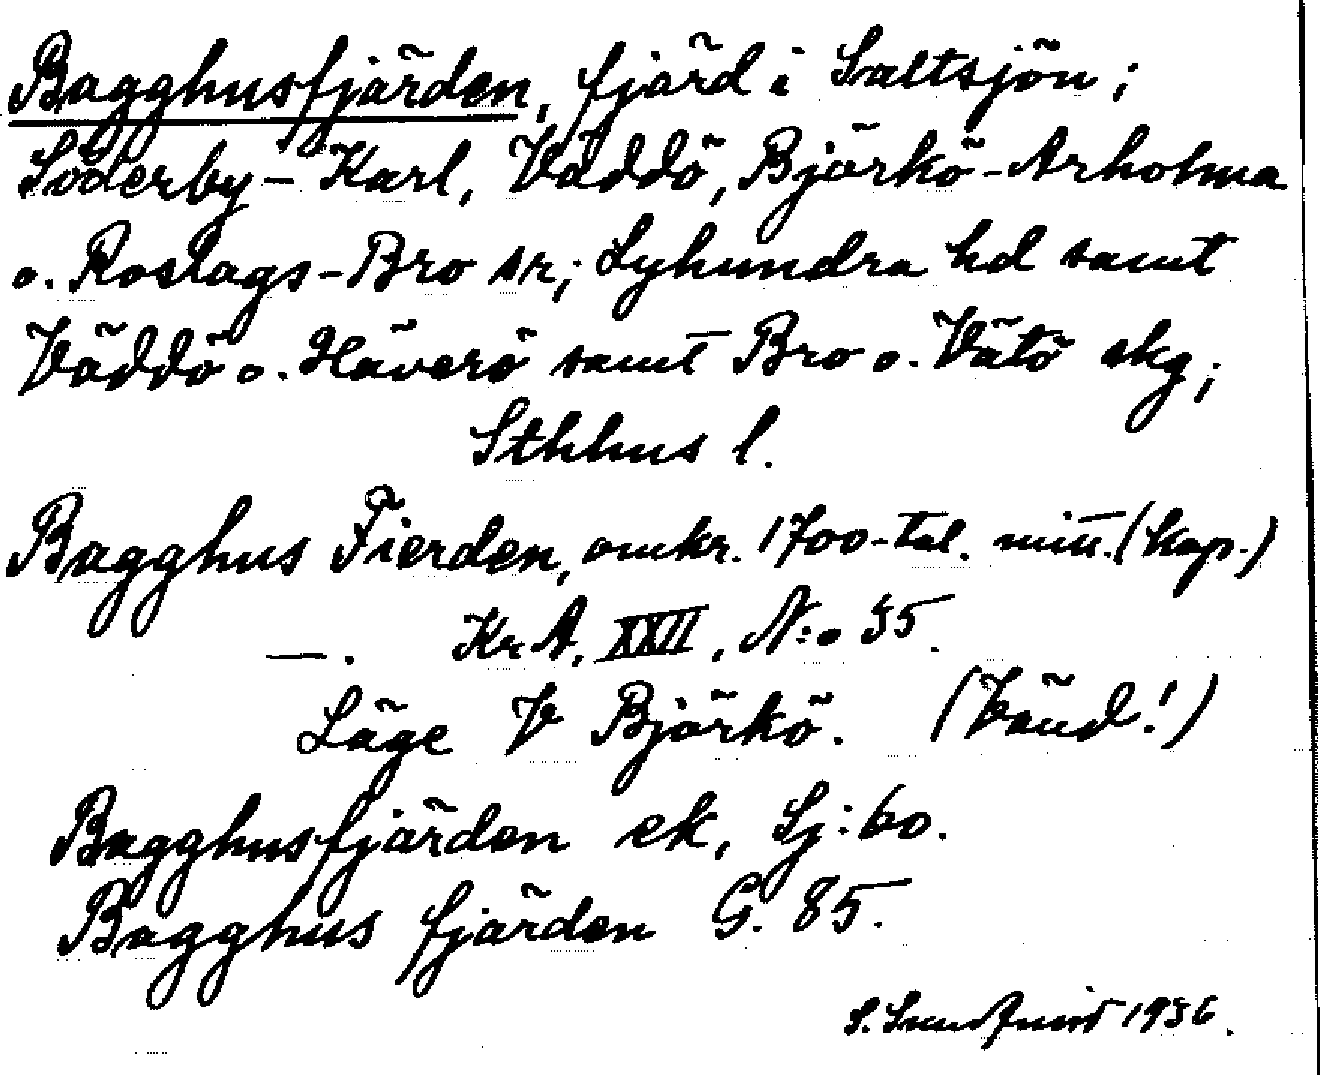 Bagghusfjärden, fjärd i Saltsjön;
Söderby-Karl, Väddö, Björkö-Arholma
o. Roslags-Bro sr; Lyhundra hd samt
Väddö o. Häverö samt Bro o. Vätö skg;
Sthlms l.
Bagghus Fierden, omkr. 1700-tal. mitt. (kop.)
—. KrA, XXII, N:o 35.
Läge V Björkö. (Vänd!)
Bagghusfjärden ek, Sj:60.
Bagghus fjärden G. 85.
S. 1936.